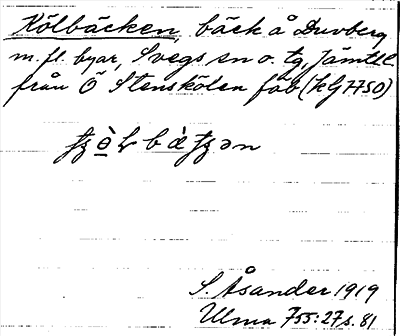 Kölbäcken, bäck å Duvberg
m. fl. byar, Svegs sn o. tg, Jämtl. l.
från Ö Stenskölen fäb (kG 7750)
S. Åsander 1919
Ulma 755:27 s. 81